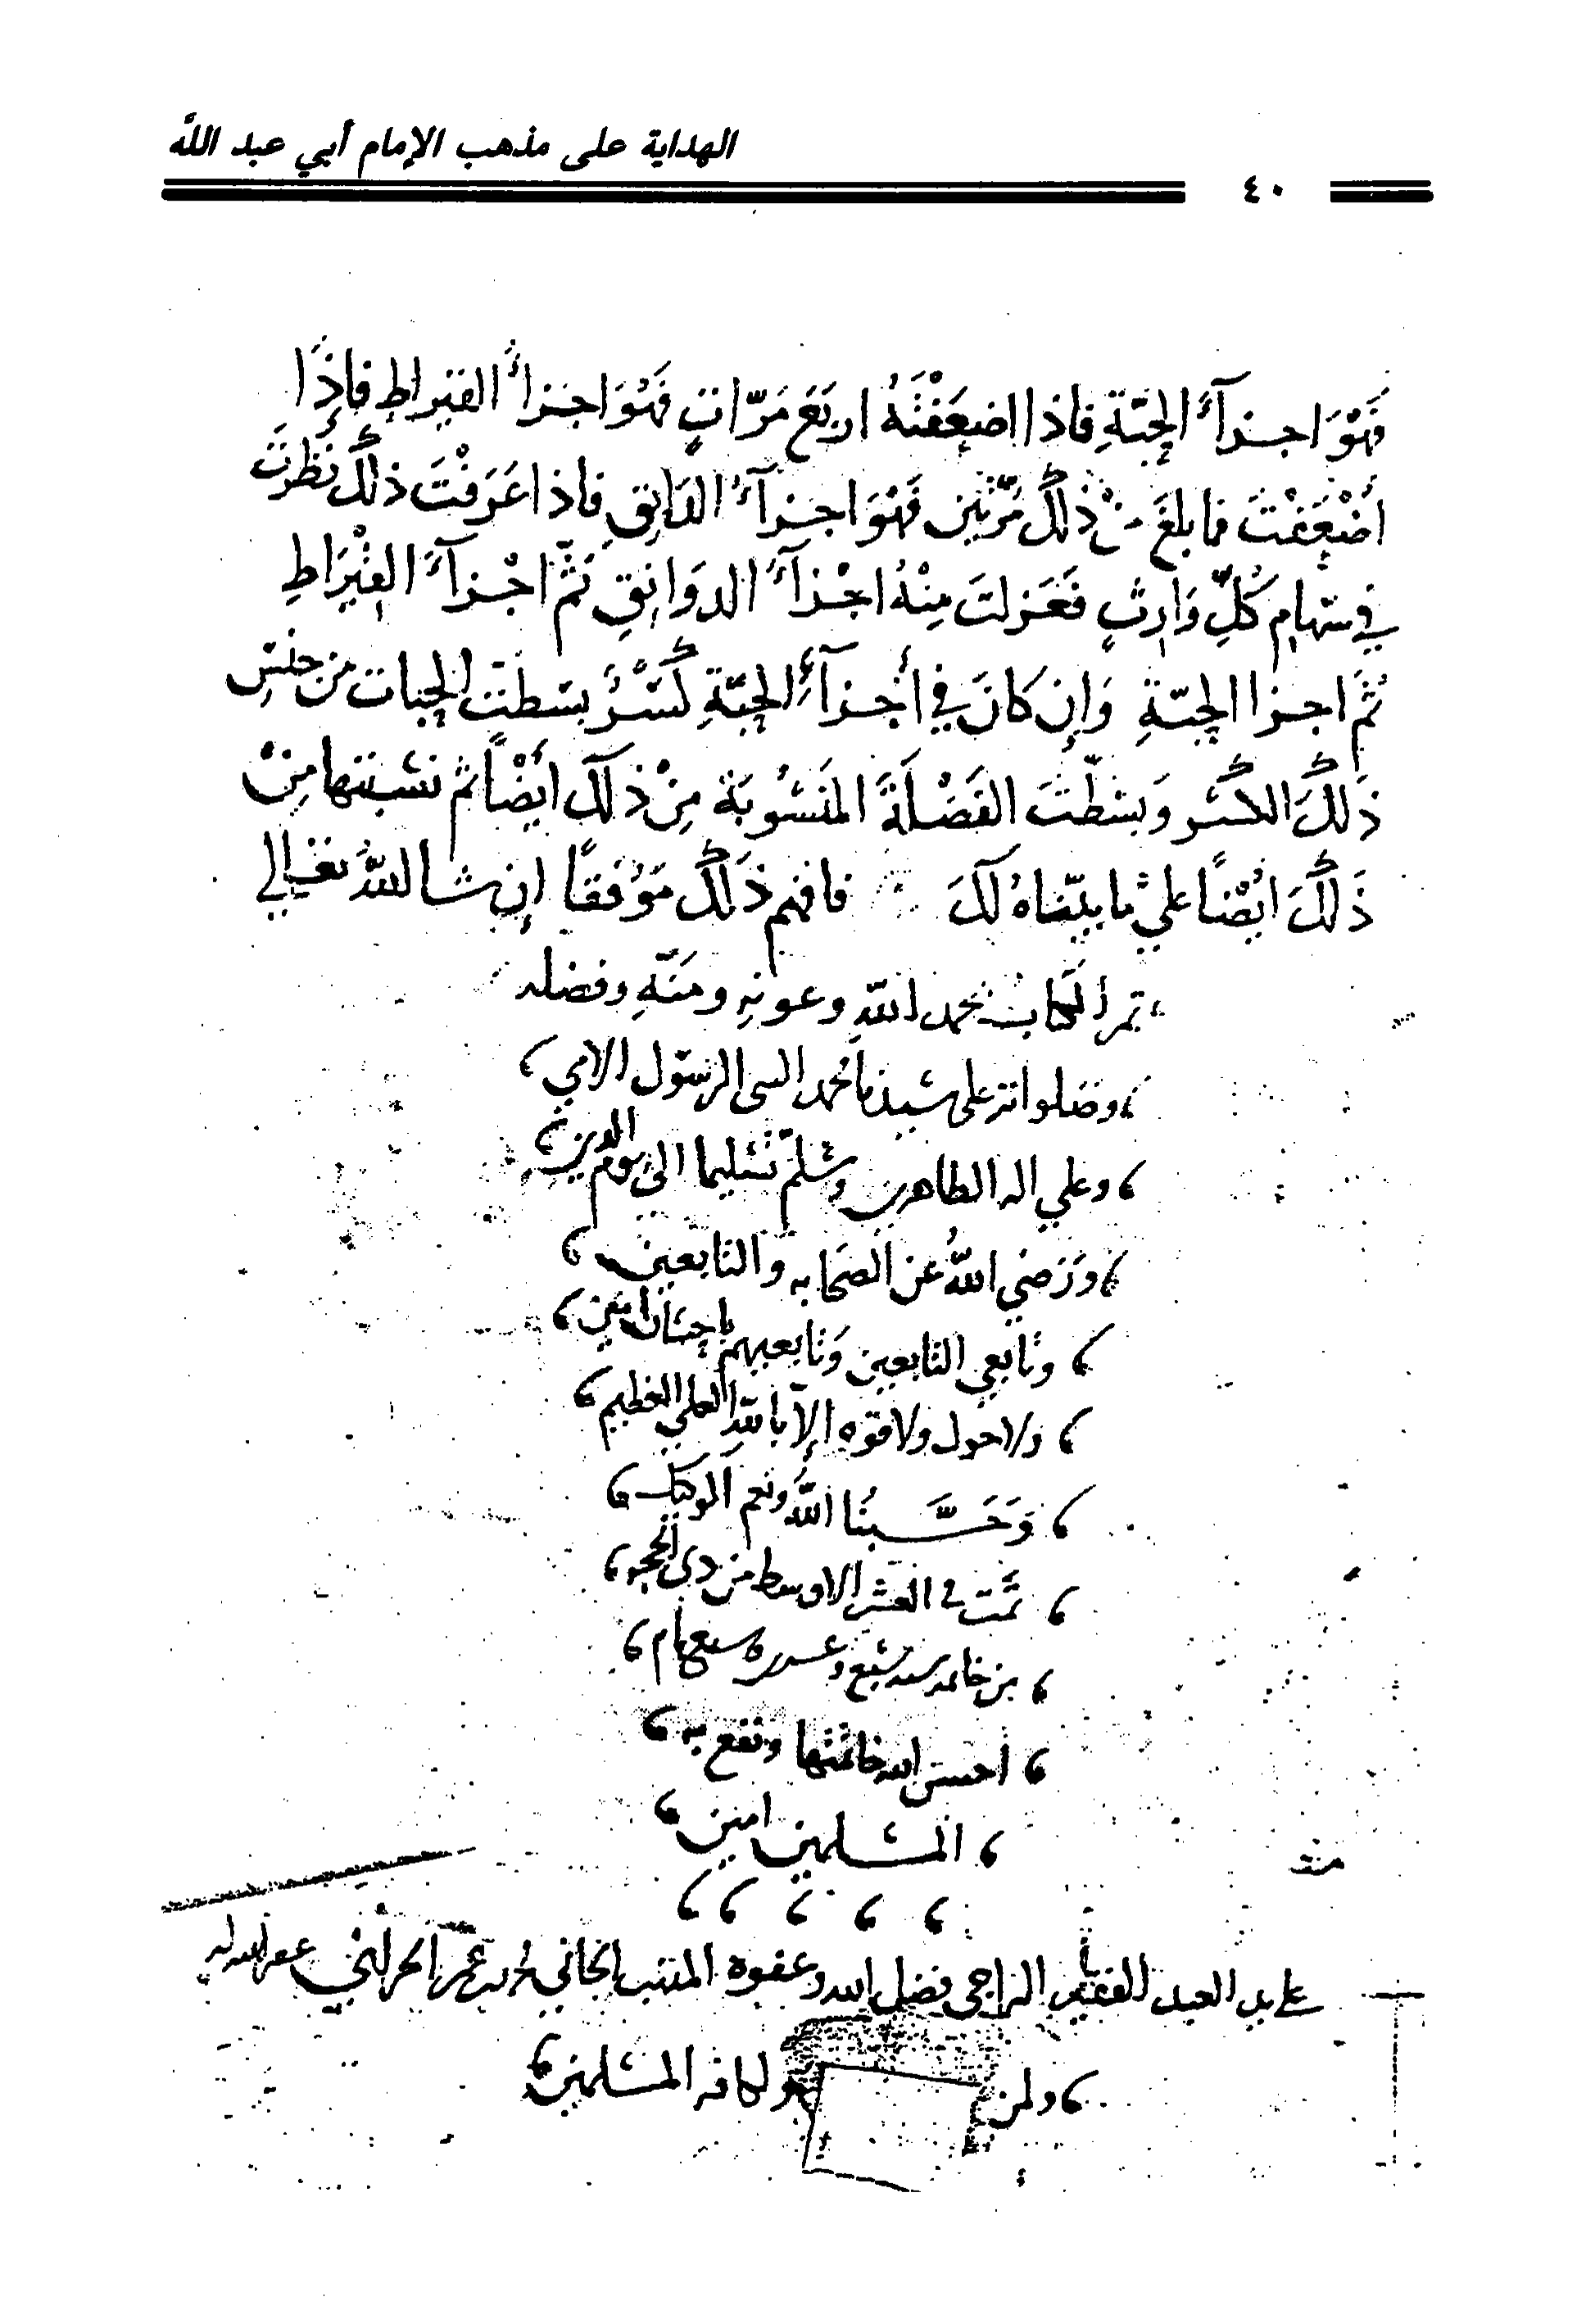 الهداية على مذهب الإمام أبي عبد الله
٤٠
فَهْوَ اجزآءُ الحَبّةِ فاذا اضعَفْتَهُ اربَعَ مَرّاتٍ فَهُوَ اجزاءُ القيراطِ فإِذَا
أَضْعَفْتَ فما بلغَ منْ ذلك مرّتين فَهُوَ اجزآءُ الدَانِقِ فاذا عَرَفْتَ ذلك نَظَرتَ
في سهامِ كُلِّ وَارثٍ فَعَزلتَ مِنْهُ اجْزآءَ الدوَانِقِ ثُمَّ اجْزآءَ القِيْرَاطِ
ثُمَّ اجزا الحَبّةِ وَإِن كانَ في أجزآءِ الحبّةِ كَسْرٌ بسَطتَ الحبات من جنسِ
ذَلكَ الكسر وَبسَطْتَ الفَضْلَةَ المنَسُوبَة مِنْ ذلكَ ايْضًا ثم نسبتها مِنْ
ذَلكَ ايْضًا عليْ ما بيّناهُ لكَ فافهم ذَلكَ مَوُفقًا إن شا اللهُ تعالي
تمّ الكتابُ بحمد اللهِ وعونِهِ ومَنّهِ وفضله
وصلواته على سيدنا محمد النبي الرسول الامي
وعلي اله الطاهرين وسلّم تسليما الى يوم الدين
وَرَضي اللهُ عن الصَحابه والتابعين
وتابعي التابعين وَتابعيهم باحسان امين
ولا حول ولا قوه إلاّ باللهِ العلي العظيم
وَحَسْبُنا اللهُ ونعم الوكيل
تمت في العشر الاوسط من ذى الحجه
من خاتمه سنه تسع وعسره سبع مايه
احسن الله خاتمتها ونفع به
المسلمين امين
على يد العبد الفقير الراجى فضل الله وعفوه المذنب الجاني عمر الحراني عفر الله له
ولمن ولكافه المسلمين